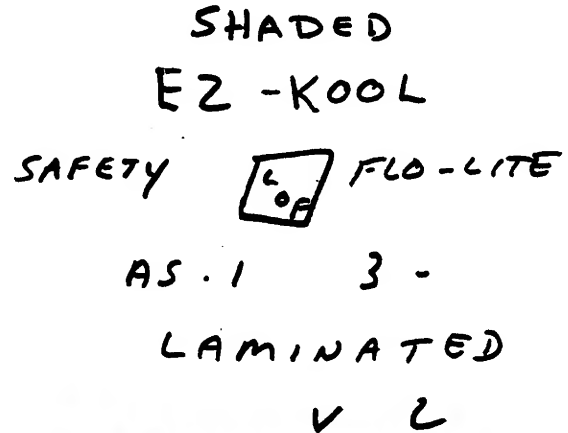 SHADED
EZ-KOOL
SAFETY LOF FLO-LITE
AS.1 3-
LAMINATED
V 2